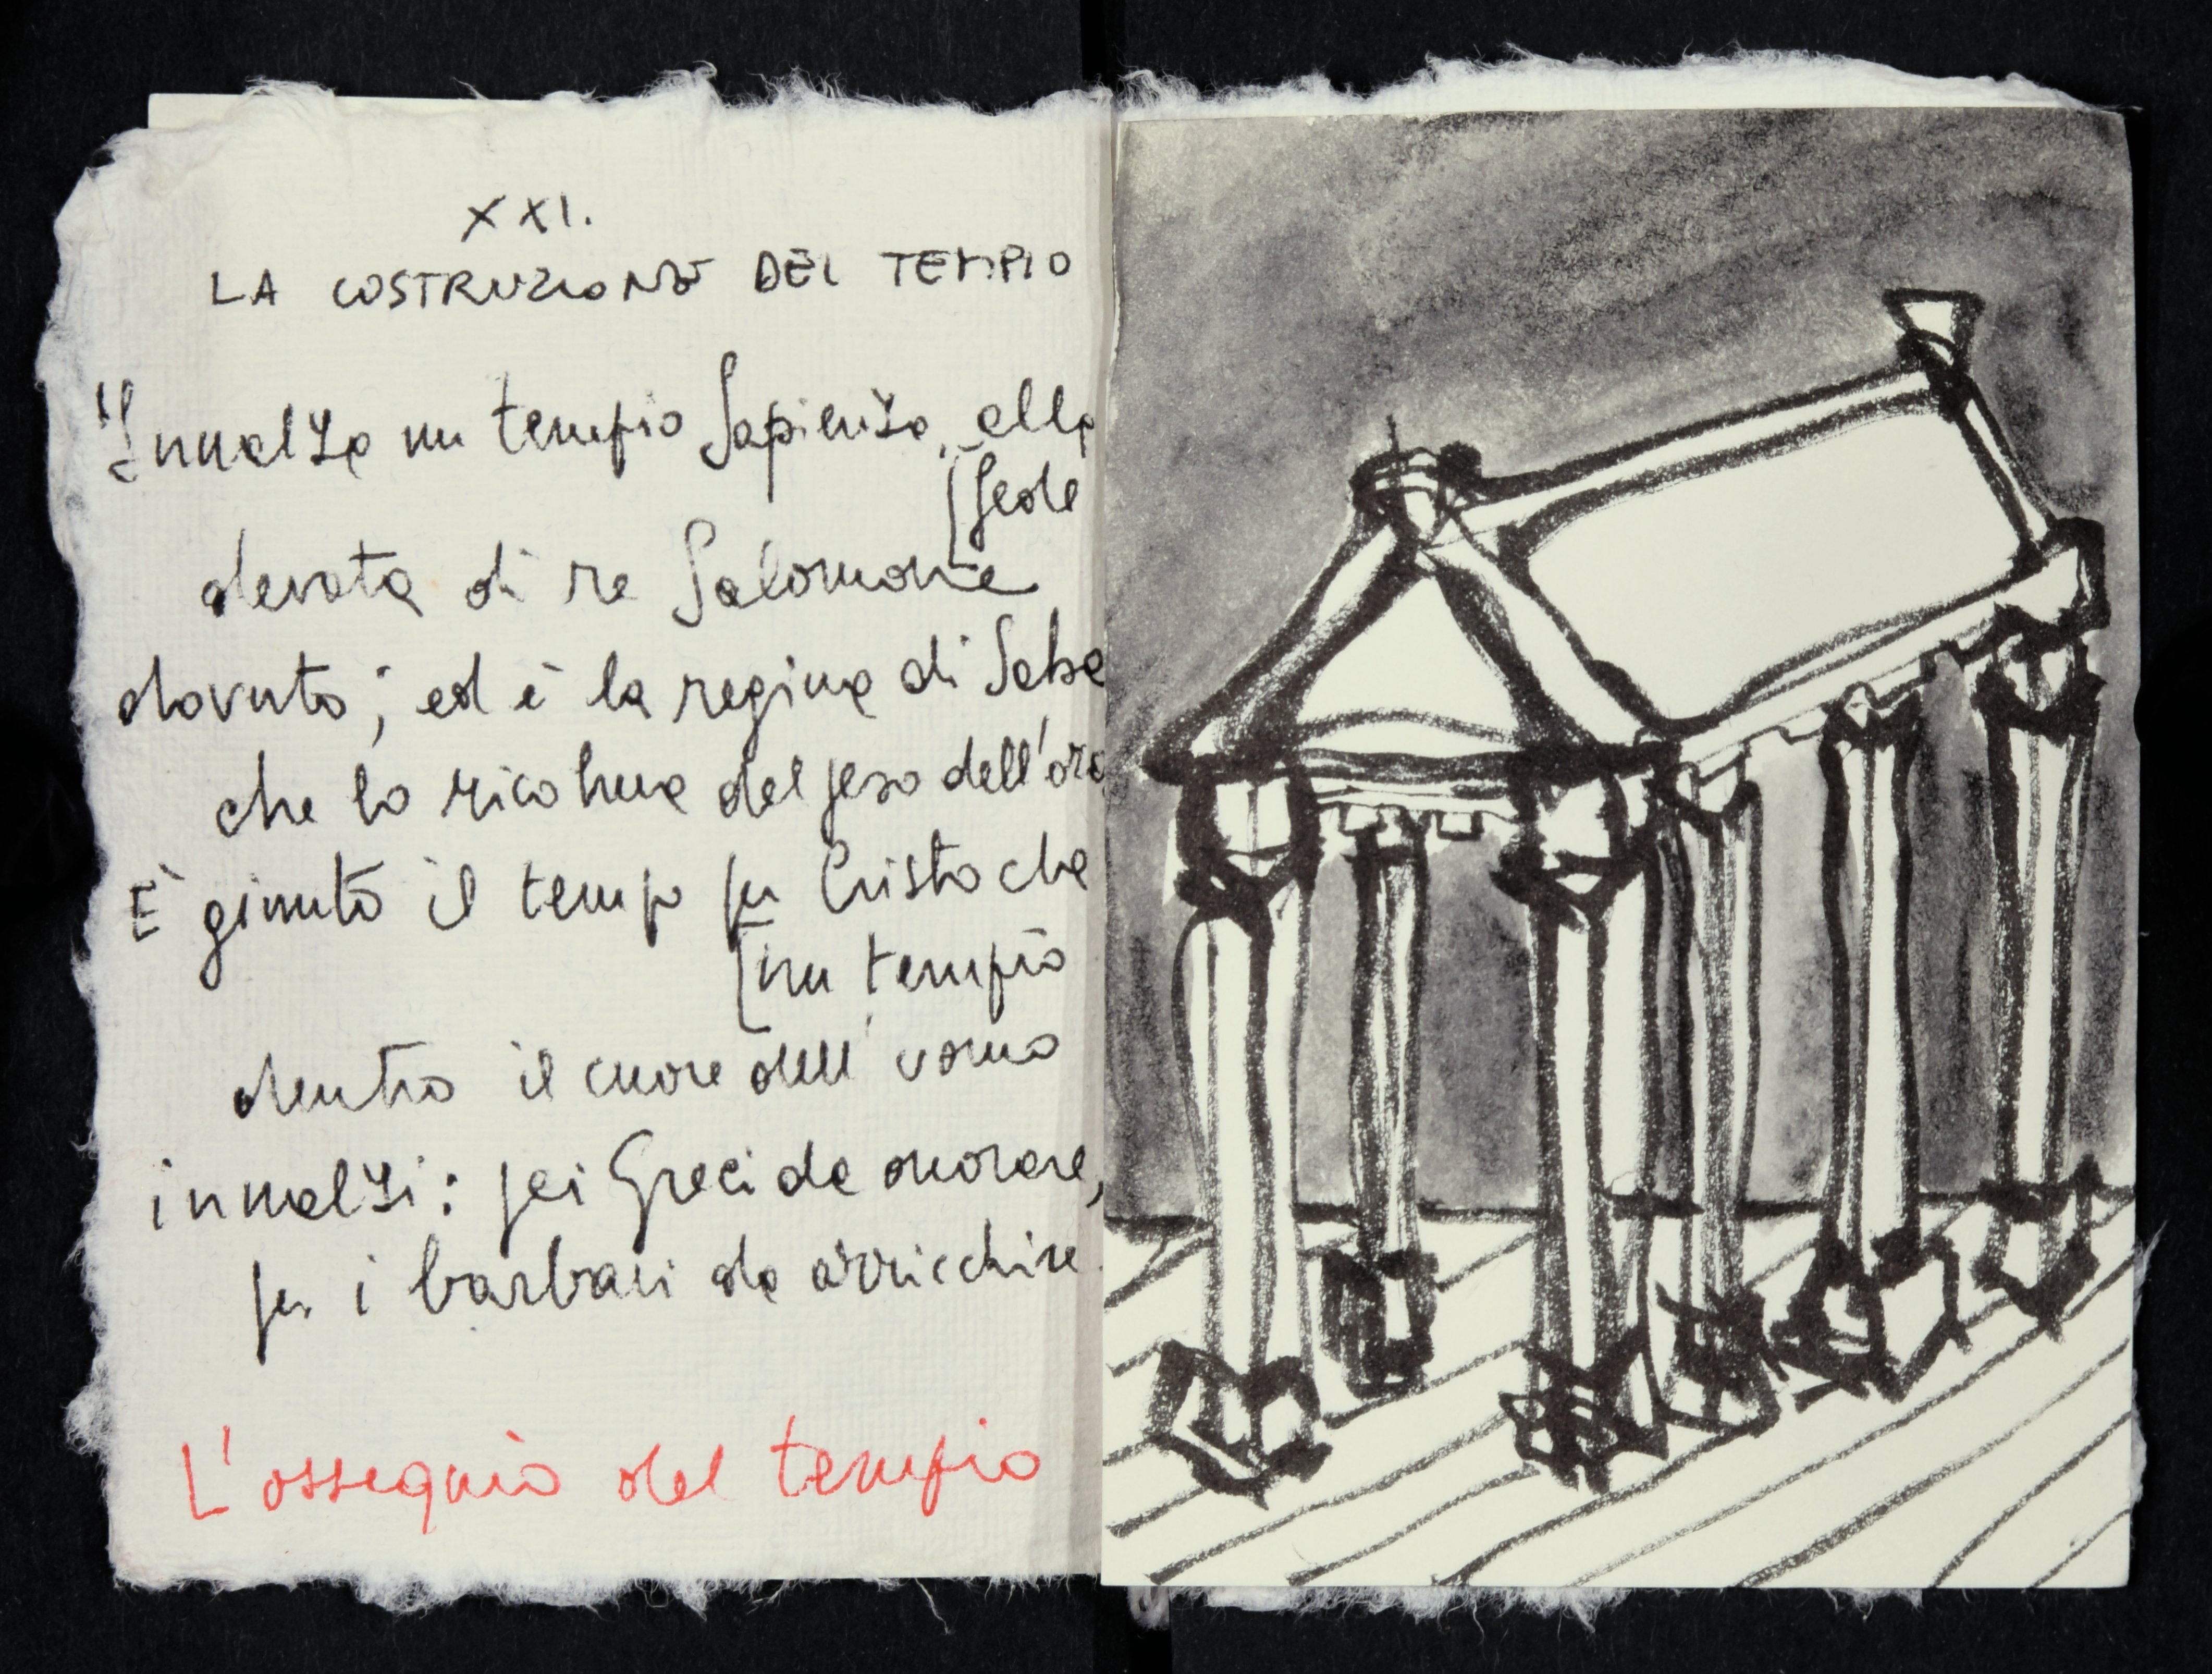 XXI.
LA COSTRUZIONE DEL TEMPIO
Innalza un tempio Sapienza, alla
[fede
devota di re Salomone
dovuto; ed è la regina di Saba
che lo ricolma del peso dell'oro
E' giunto il tempo per Cristo che
[un tempio
dentro il cuore dell'uomo
innalzi: pei Greci da onorare,
per i barbari da arricchire.
L'ossequio del tempio